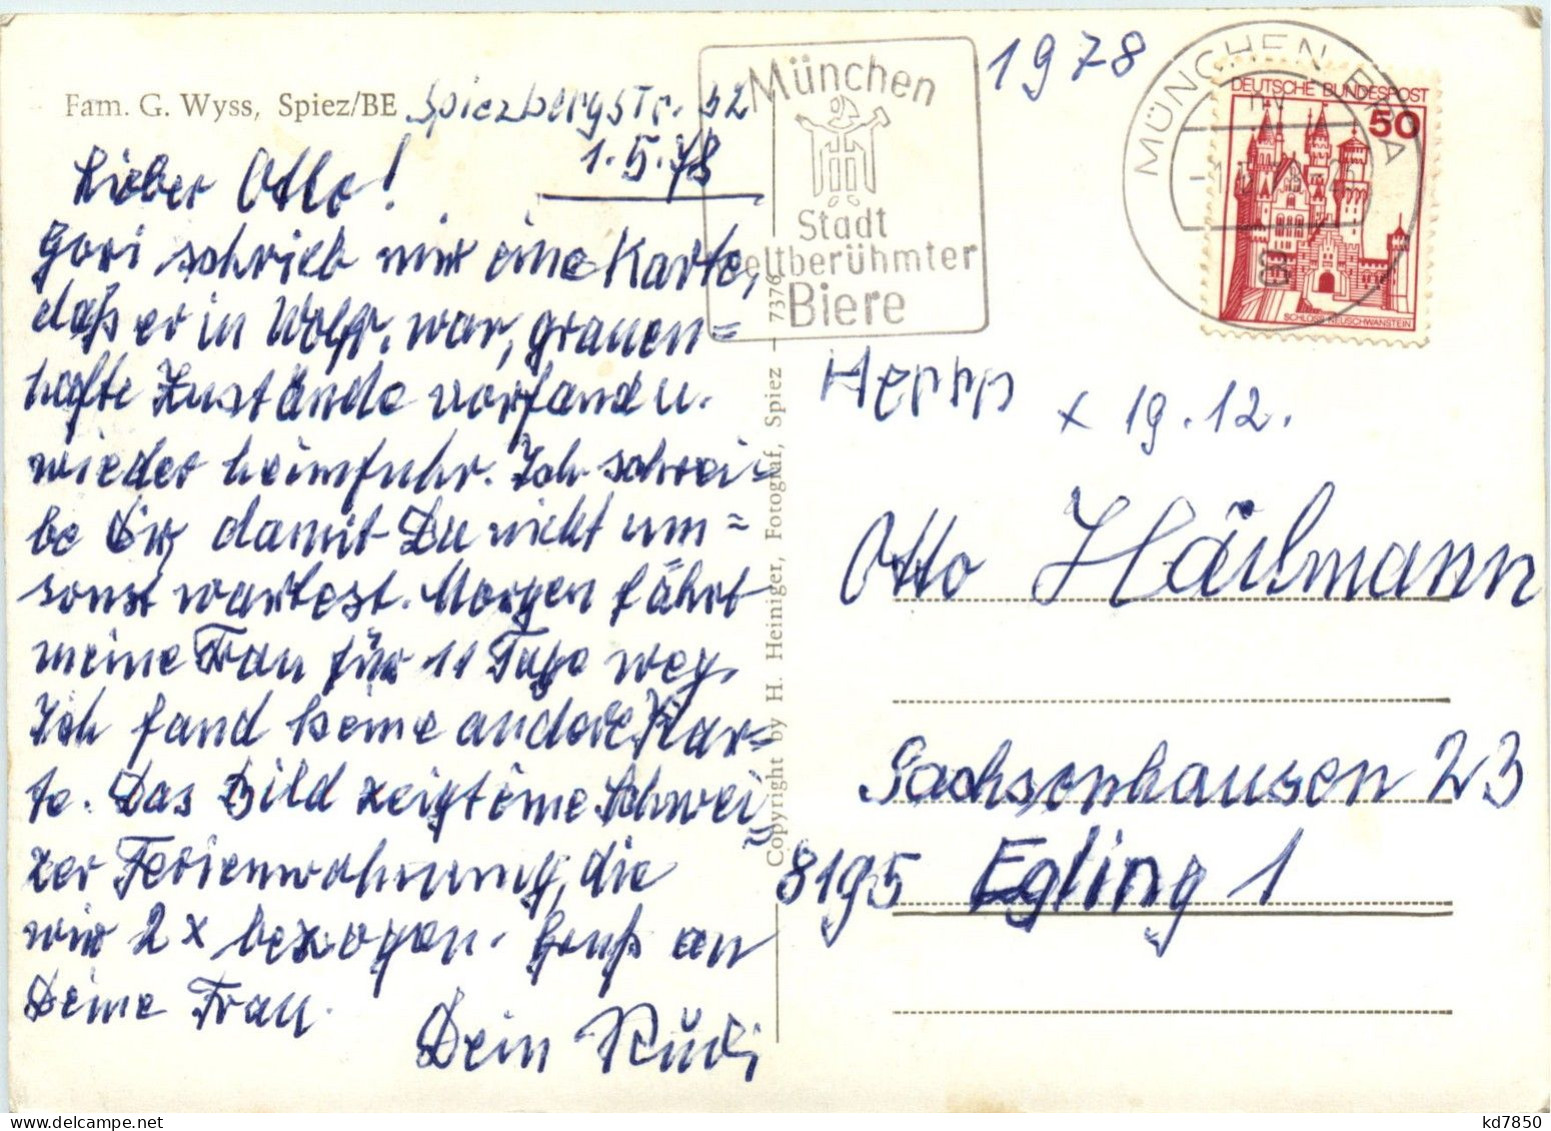 Fam. G. Wyss, Spiez/BE Spiezbergstr. 52
1.5.78
Lieber Otto!
Gori schrieb mir eine Karte,
daß er in Wolfr. war, grauen=
hafte Zustände vorfand u.
wieder heimfuhr. Ich schrei=
be Dir, damit Du nicht um=
sonst wartest. Morgen fährt
meine Frau für 11 Tage weg.
Ich fand keine andere Kar=
te. Das Bild zeigt eine Schwei=
zer Ferienwohnung, die
wir 2x bezogen. Gruß an
Deine Frau.
Dein Rudi
Copyright by H. Heiniger, Fotograf, Spiez - 7376
München
Stadt
weltberühmter
Biere
1978
MÜNCHEN BPA
DEUTSCHE BUNDESPOST
50
SCHLOSS NEUSCHWANSTEIN
x 19.12.
Otto Härlmann
Sachsenhausen 23
8195 Egling 1
kd7850